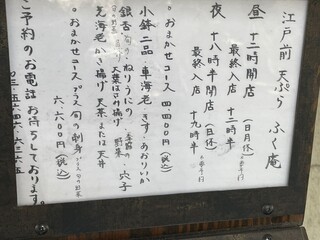 江戸前 天ぷら ふく庵
昼 十二時開店 (日月休)
最終入店 十二時半
夜 十八時半開店 (日休)
最終入店 十九時半
○おまかせコース 四、四〇〇円(税込)
小鉢二品 車海老 きす あおりいか
銀杏 ねりうに 野菜 穴子
天茶 または 天丼
○おまかせコース プラス 旬の刺身
六、六〇〇円(税込)
ご予約のお電話お待ちしております。